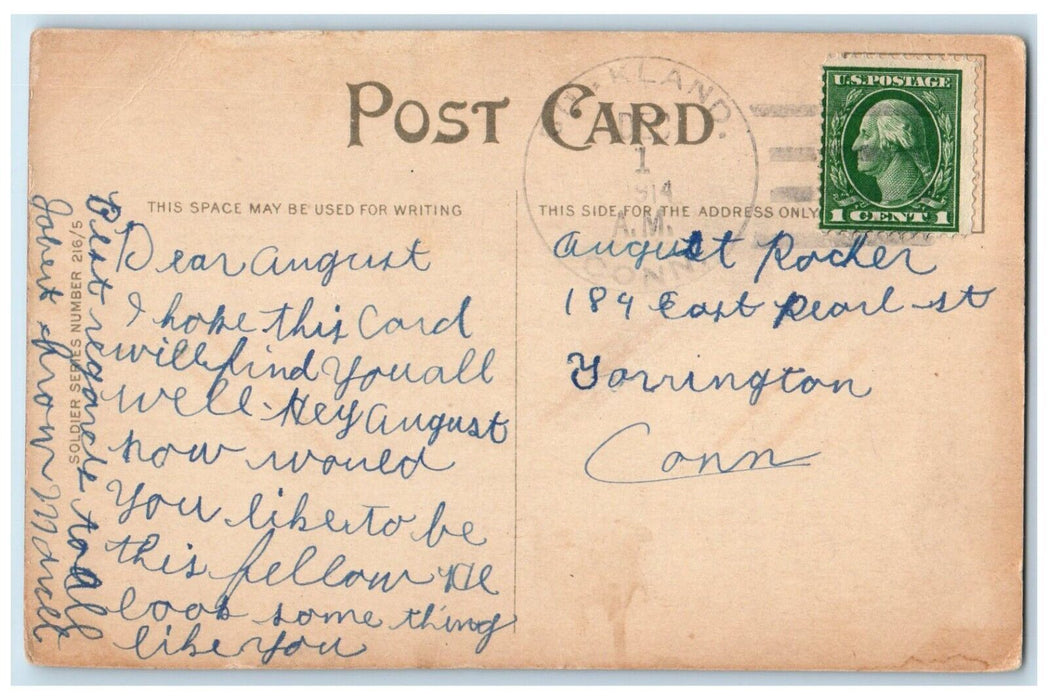 POST CARD
U.S. POSTAGE
1 CENT 1
KLAND,
DEC
1
1914
A.M.
CONN.
THIS SPACE MAY BE USED FOR WRITING
THIS SIDE FOR THE ADDRESS ONLY
Dear August
I hope this Card
will find You all
well. Hey August
how would
You like to be
this fellow He
look some thing
like You
Best regards to all
from
SOLDIER SERIES NUMBER 216/5
August Rocher
184 East Pearl st
Torrington
Conn